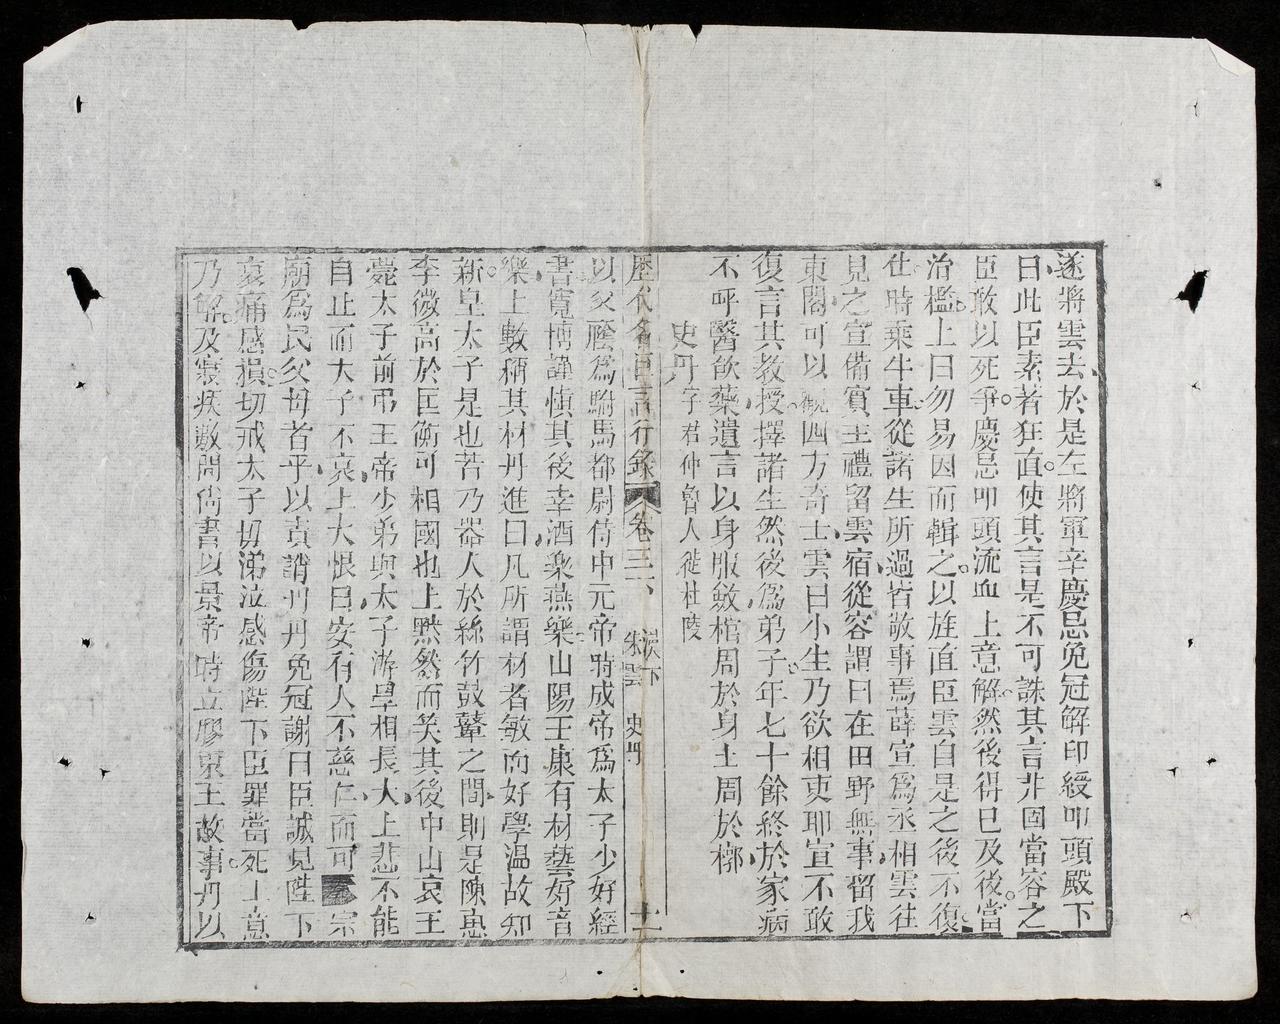 遂將雲去於是左將軍辛慶忌免冠解印綬叩頭殿下
曰此臣素著狂直使其言是不可誅其言非固當容之
臣敢以死爭慶忌叩頭流血上意解然後得已及後當
治檻上曰勿易因而輯之以旌直臣雲自是之後不復
仕時乘牛車從諸生所過皆敬事焉薛宣為丞相雲往
見之宣備賓主禮留雲宿從容謂曰在田野無事留我
東閣可以觀四方奇士雲曰小生乃欲相吏耶宣不敢
復言其教授擇諸生然後為弟子年七十餘終於家病
不呼醫飲藥遺言以身服斂棺周於身土周於槨
史丹字君仲魯人徙杜陵
歷代名臣言行錄 卷三下 漢下 朱雲 史丹 十一
以父廕為駙馬都尉侍中元帝時成帝為太子少好經
書寬博謹慎其後幸酒樂燕樂山陽王康有材藝好音
樂上數稱其材丹進曰凡所謂材者敏而好學溫故知
新皇太子是也若乃器人於絲竹鼓鼙之間則是陳惠
李微高於匡衡可相國也上默然而笑其後中山哀王
薨太子前弔王帝少弟與太子游學相長大上悲不能
自止而太子不哀上大恨曰安有人不慈仁而可奉宗
廟為民父母者乎以責謂丹丹免冠謝曰臣誠見陛下
哀痛感損切戒太子毋涕泣感傷陛下臣罪當死上意
乃解及寢疾數問尚書以景帝時立膠東王故事丹以